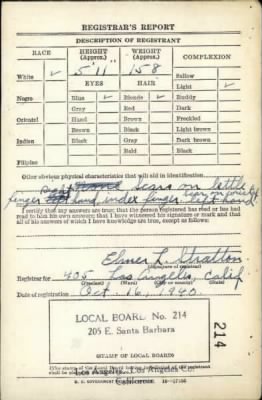 REGISTRAR'S REPORT
DESCRIPTION OF REGISTRANT
RACE HEIGHT (Approx.) WEIGHT (Approx.) COMPLEXION
5' 11" 158 Sallow
White ✓ EYES HAIR Light ✓
Negro Blue ✓ Blonde ✓ Ruddy
Gray Red Dark
Oriental Hazel Brown Freckled
Brown Black Light brown
Indian Black Gray Dark brown
Bald Black
Filipino
Other obvious physical characteristics that will aid in identification
scars on little
finger hand, index finger left hand
I certify that my answers are true; that the person registered has read or has had
read to him his own answers; that I have witnessed his signature or mark and that
all of his answers of which I have knowledge are true, except as follows:
Elmer L. Stratton
(Signature of registrar)
Registrar for 405 Los Angeles, Calif
(Precinct) (Ward) (City or county) (State)
Date of registration Oct. 16, 1940
LOCAL BOARD No. 214
205 E. Santa Barbara
214
(STAMP OF LOCAL BOARD)
Los Angeles, Los Angeles Co.
California
U. S. GOVERNMENT